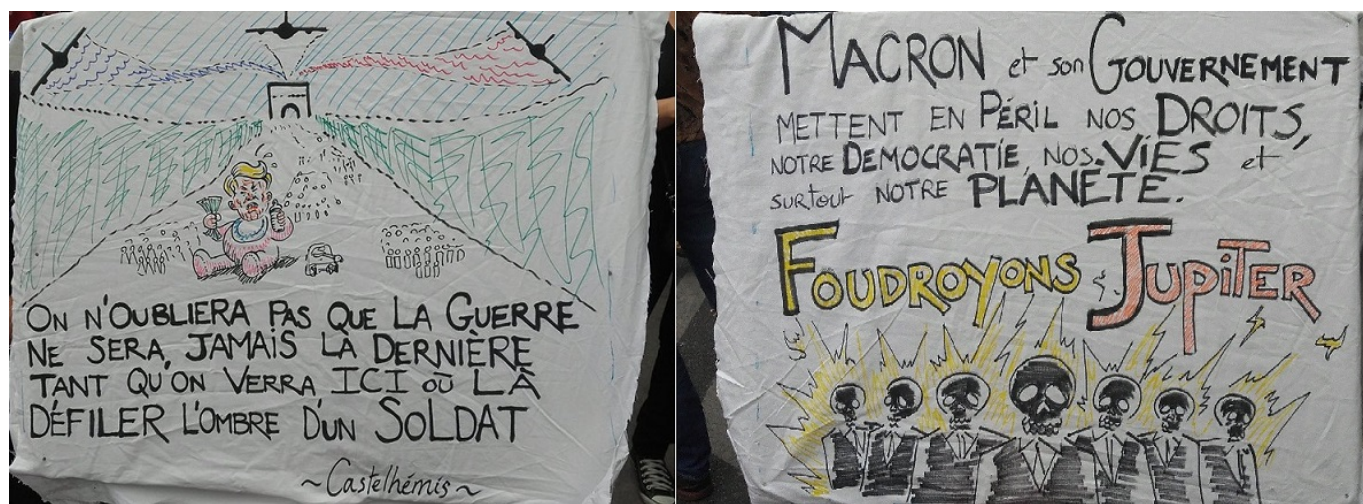 ON N'OUBLIERA PAS QUE LA GUERRE
NE SERA, JAMAIS LA DERNIÈRE
TANT QU'ON VERRA, ICI OÙ LÀ
DÉFILER L'OMBRE D'UN SOLDAT
~Castelhémis~
MACRON et son GOUVERNEMENT
METTENT EN PÉRIL NOS DROITS,
NOTRE DÉMOCRATIE, NOS VIES et
surtout NOTRE PLANÈTE.
FOUDROYONS JUPITER